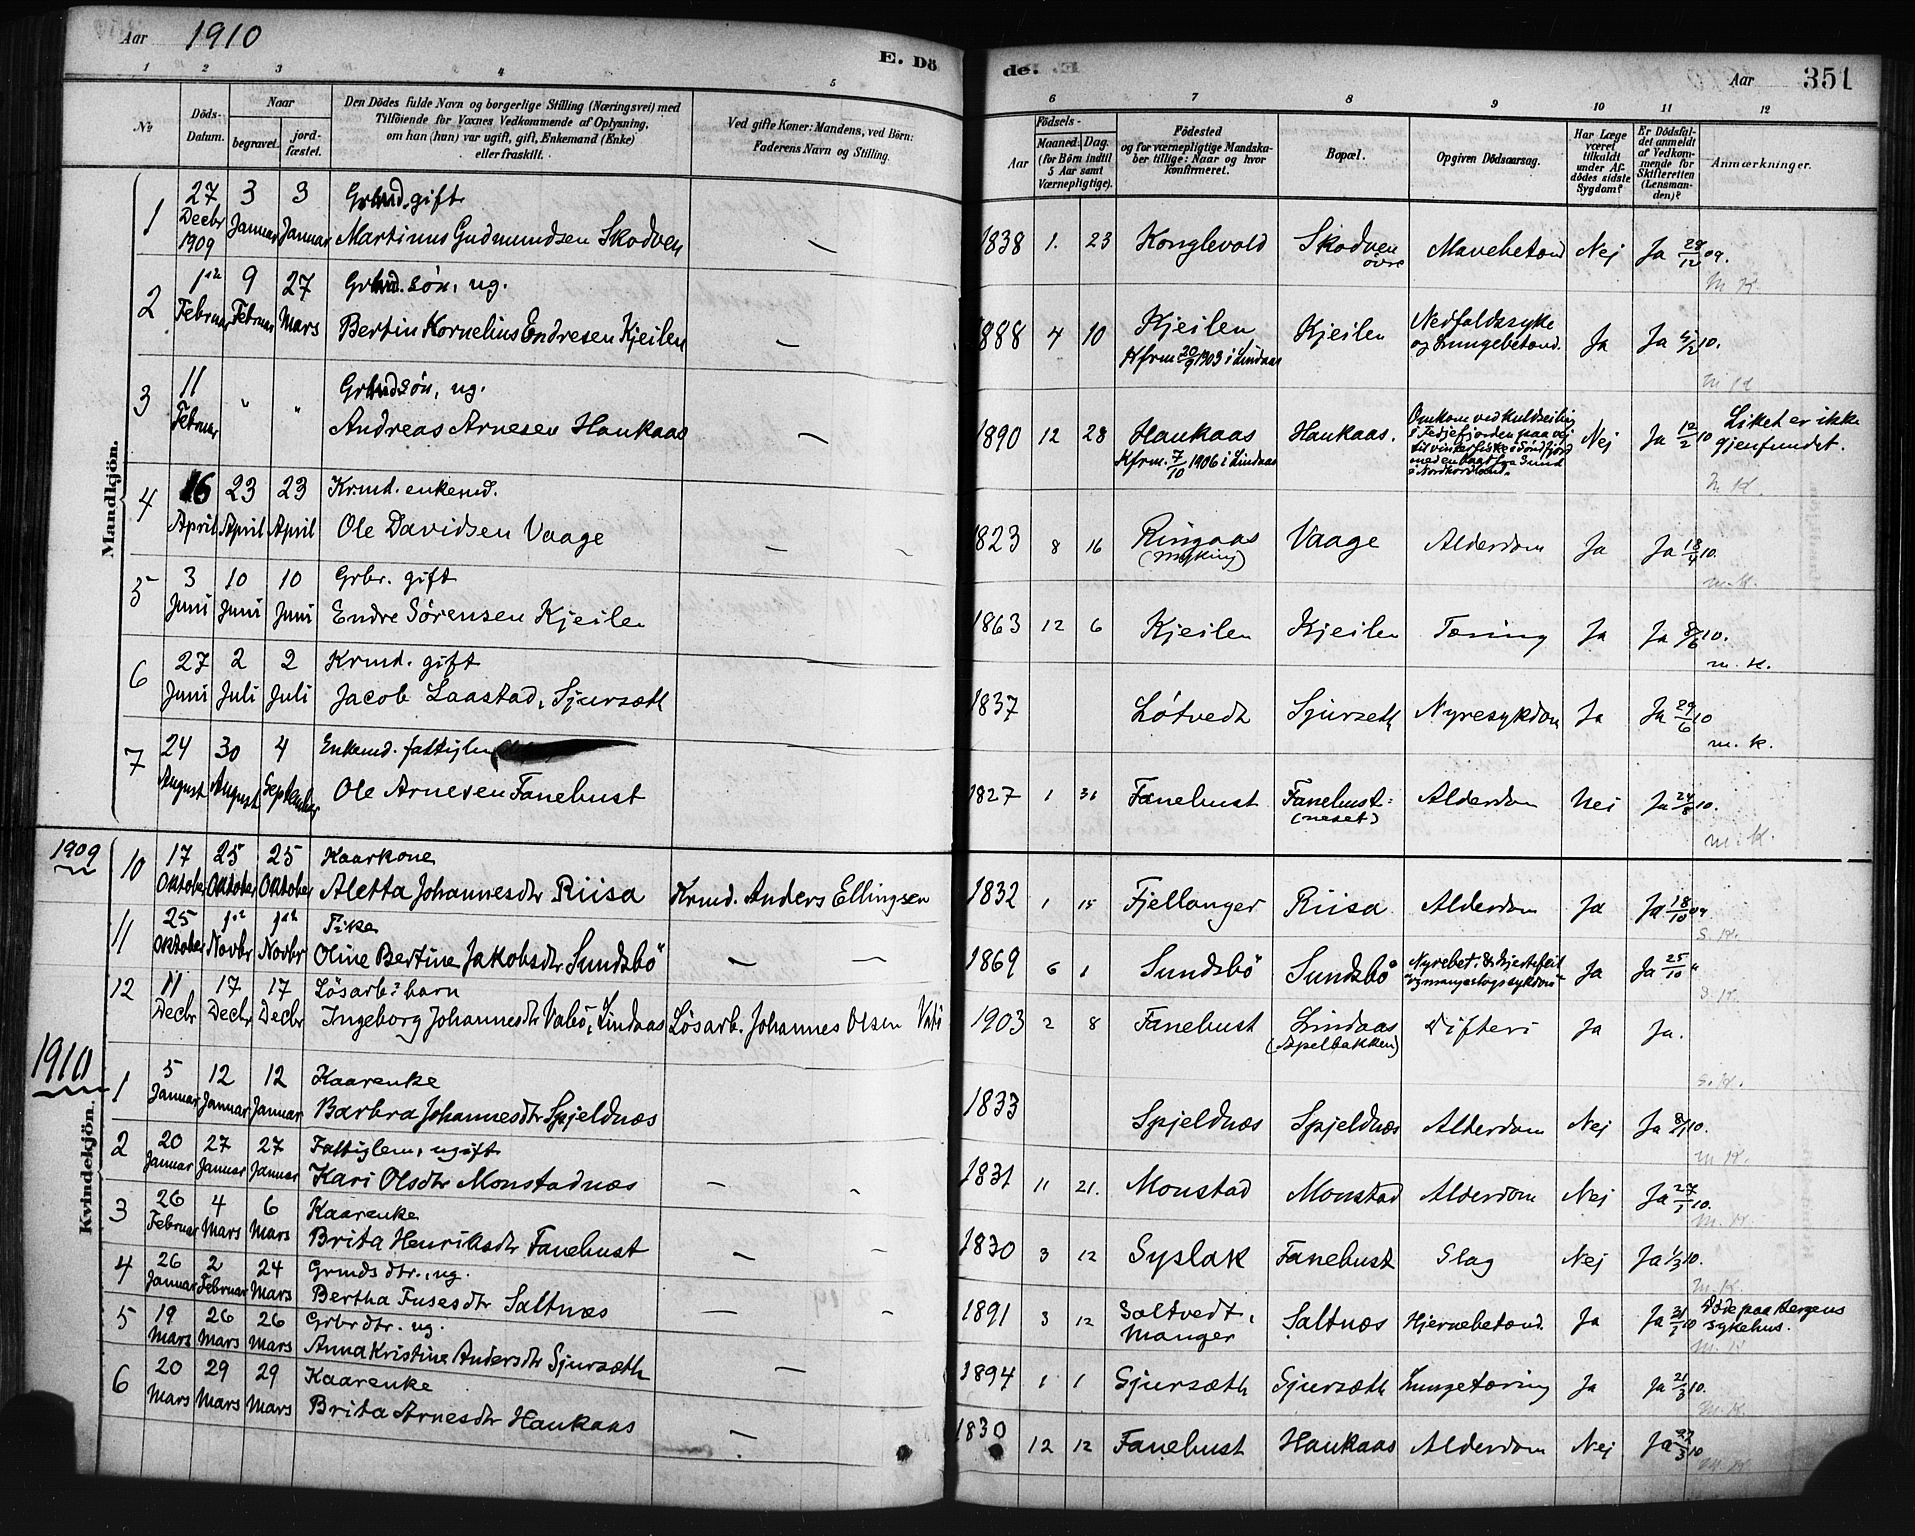 Aar 1910
E. Dö
de.
Aar
351
1 2 3 4 5
6 7 8 9 10 11 12
No
Döds-Datum.
Naar
begravet.
jord-fæstet.
Den Dödes fulde Navn og borgerlige Stilling (Næringsvei) med
Tilföiende for Voxnes Vedkommende af Oplysning,
om han (hun) var ugift, gift, Enkemand (Enke)
eller fraskilt.
Ved gifte Koner: Mandens, ved Börn:
Faderens Navn og Stilling.
Aar
Födsels-
Maaned. Dag.
(for Börn indtil
5 Aar samt
Værnepligtige).
Födested
og for værnepligtige Mandska-
ber tillige: Naar og hvor
konfirmeret.
Bopæl.
Opgiven Dödsaarsag.
Har Læge
været
tilkaldt
under Af-
dödes sidste
Sygdom?
Er Dödsfal-
det anmeldt
af Vedkom-
mende for
Skifteretten
(Lensman-
den)?
Anmærkninger.
Mandkjön.
1 27 Decbr 1909 3 Januar 3 Januar Grbrmd. gift
Martinus Gudmundsen Skodven — 1838 1. 23 Konglevold Skodven övre Mavebetænd Nej Ja 28/12 09.
m. K.
2 1ste Februar 9 Februar 27 Mars Grbrmd. sön, ug.
Bertin Kornelius Endresen Kjeilen — 1888 4 10 Kjeilen Kfrm 20/9 1903 i Lindaas Kjeilen Nedfaldssyke og Lungebetænd. Ja Ja 4/2 10.
m. K.
3 11 Februar " " Grbrmd sön, ug.
Andreas Arnesen Haukaas — 1890 12 28 Haukaas Kfrm. 7/10 1906 i Lindaas Haukaas. Omkom ved kuldseiling i Fedjefjorden paa vej til vinterfiske i Söndfjord med en baad fra Sund i Nordhordland. Nej Ja 12/2 10 Liket er ikke gjenfundet.
m. K.
4 16 April 23 April 23 April Krmd. enkemd.
Ole Davidsen Vaage — 1823 8 16 Ringaas (Myking) Vaage Alderdom Ja Ja 18/4 10.
m. K.
5 3 Juni 10 Juni 10 Juni Grbr. gift
Endre Sörensen Kjeilen 1863 12 6 Kjeilen Kjeilen Tæring Ja Ja 8/6 10.
m. K.
6 27 Juni 2 Juli 2 Juli Krmd. gift
Jacob Laastad, Sjursæth 1837 Lötvedt Sjursæth Nyresykdom Ja Ja 29/6 10
m. K.
7 24 August 30 August 4 September Enkemd. fattiglem
Ole Arnesen Fanehust 1827 1 31 Fanehust Fanehust: (neset) Alderdom Nei Ja 24/8 10.
m. K.
1909
10 17 Oktober 25 Oktober 25 Oktober Kaarkone
Aletta Johannesdtr Riisa Krmd. Anders Ellingsen 1832 1 15 Fjellanger Riisa Alderdom Ja Ja 18/10 09
s. K.
11 25 Oktober 1ste Novbr 1ste Novbr Pike
Oline Bertine Jakobsdtr Sundsbö — — 1869 6 1 Sundsbö Sundsbö Nyrebet. & Hjertefeil Ja Ja 25/10 "
s. K.
12 11 Decbr 17 Decbr 17 Decbr Lösarb.s barn
Ingeborg Johannesdtr Vabö, Lindaas Lösarb. Johannes Olsen Vabö 1903 2 8 Fanehust Lindaas (Apelbakken) Difteri Ja Ja.
s. K.
1910
Kvindekjön.
1 5 Januar 12 Januar 12 Januar Kaarenke
Barbra Johannesdtr Spjeldnæs 1833 Spjeldnæs Spjeldnæs Alderdom Nej Ja 8/1 10.
m. K.
2 20 Januar 27 Januar 27 Januar Fattiglem, ugift
Kari Olsdtr Monstadnæs — 1831 11 21. Monstad Monstad Alderdom Nej Ja 27/1 10.
m. K.
3 26 Februar 4 Mars 6 Mars Kaarenke
Brita Henriksdtr Fanehust — — 1830 3 12 Syslak Fanehust Slag Nej Ja 1/3 10.
m. K.
4 26 Januar 2 Februar 24 Mars Grmds dtr., ug.
Bertha Fusesdtr Saltnæs — — 1891 3 12 Saltvedt, Manger Saltnæs Hjernebetænd. Ja Ja 31/1 10 Döde paa Bergens sykehus.
m. K.
5 19 Mars 26 Mars 26 Mars Grbr dtr. ug.
Anna Kristine Andersdtr Sjursæth — 1894 1 1 Sjursæth Sjursæth Lungetæring Ja Ja 21/3 10.
m. K.
6 20 Mars 29 Mars 29 Mars Kaarenke
Brita Arnesdtr Haukaas — 1830 12 12 Fanehust Haukaas Alderdom Nej Ja 22/3 10
m. K.